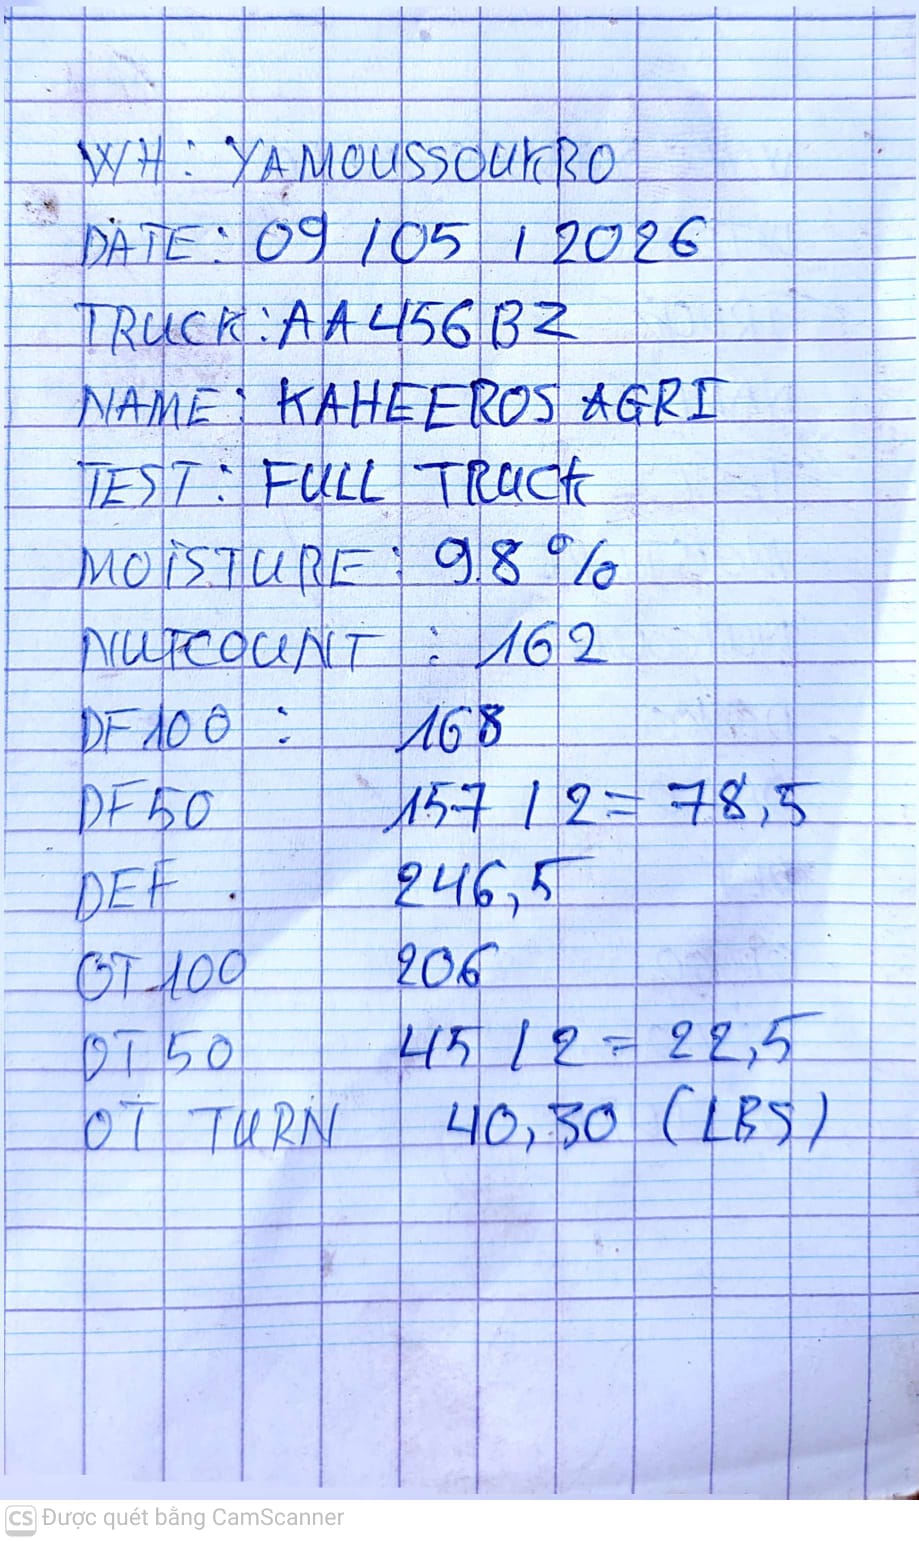 WH: YAMOUSSOUKRO
DATE: 09 / 05 / 2026
TRUCK: AA456BZ
NAME: KAHEEROS AGRI
TEST: FULL TRUCK
MOISTURE: 9.8%
NUTCOUNT : 162
DF100 : 168
DF50 157 / 2 = 78,5
DEF. 246,5
OT100 206
OT50 45 / 2 = 22,5
OT TURN 40,30 (LBS)
CS Được quét bằng CamScanner